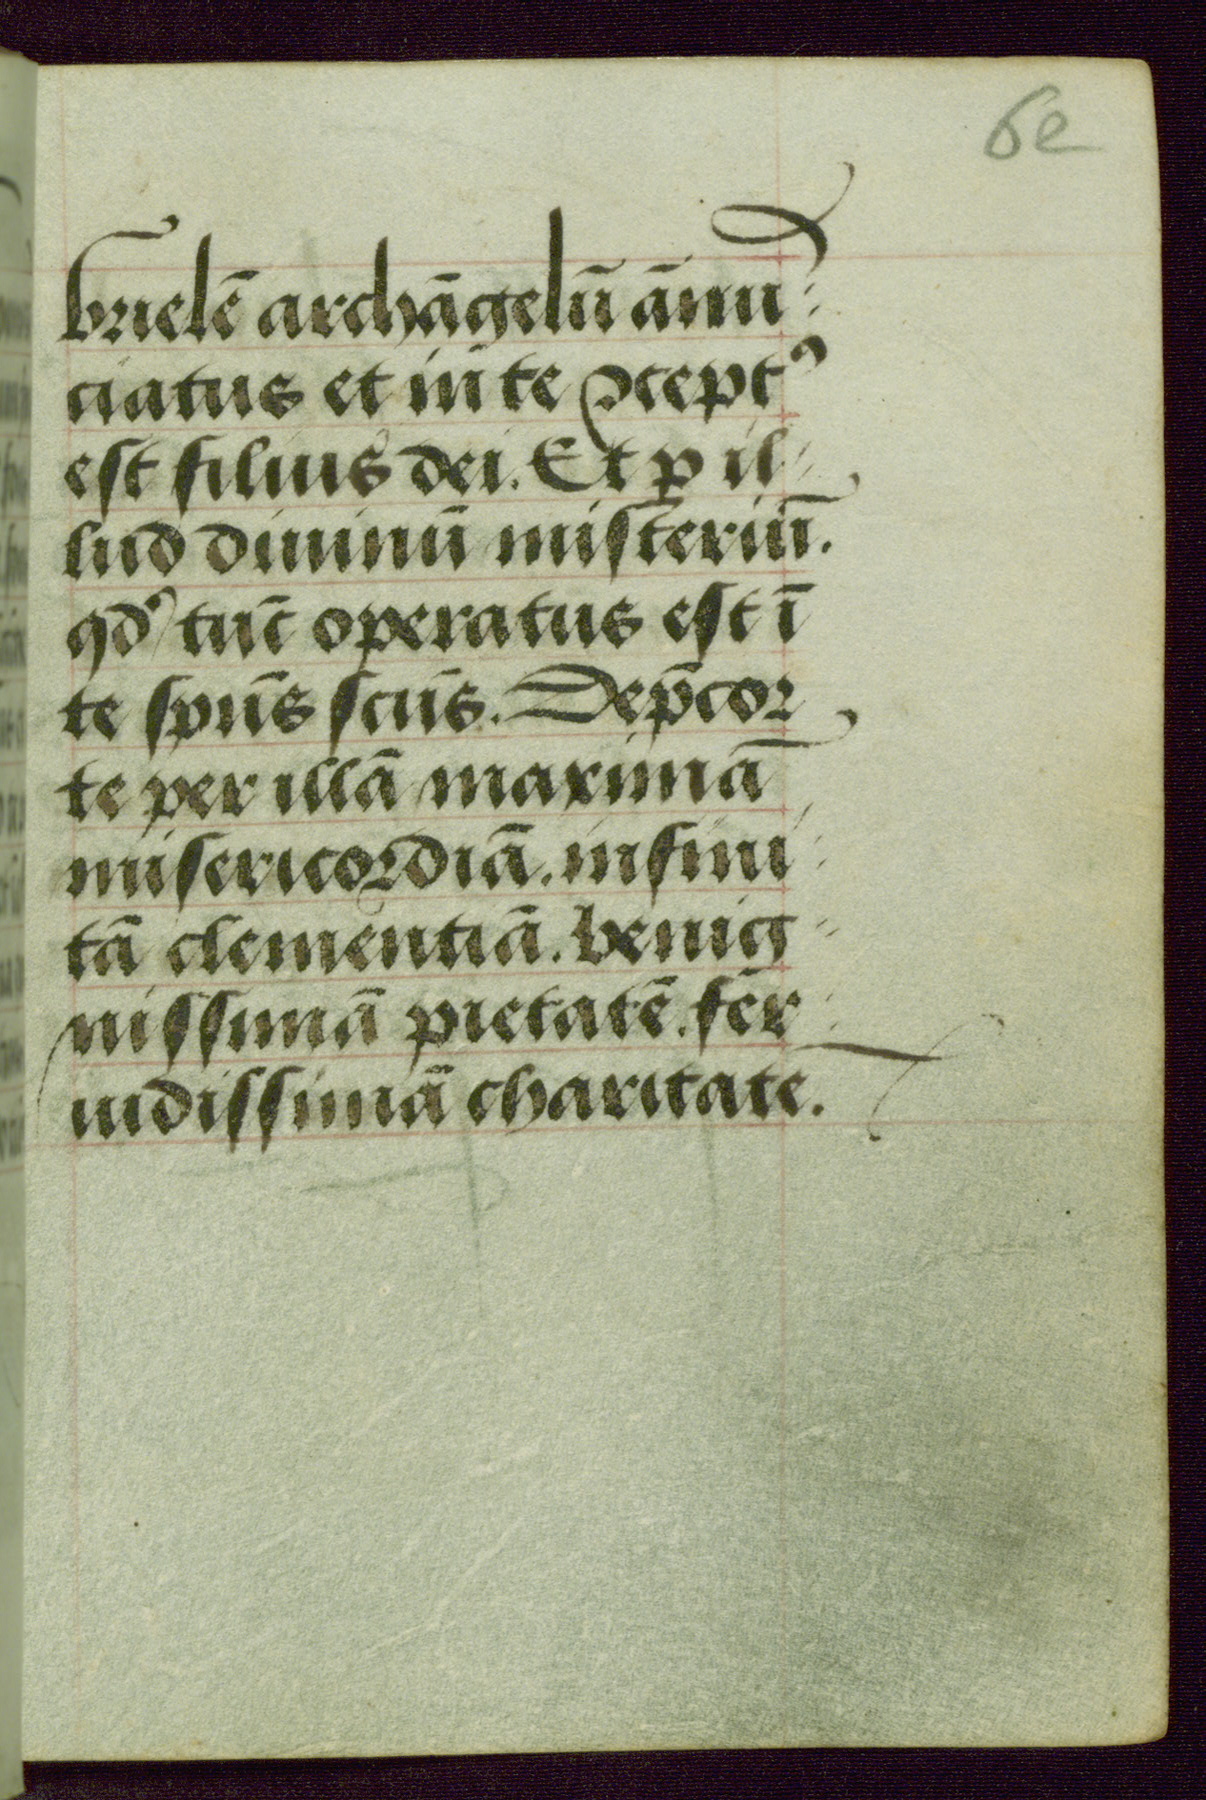 6e
brielē archāgelū ānnu
ciatus et in te ↄcept᾽
est filius dei. Et ꝑ il
lud diuinū misteriū.
qd᾽ tūc operatus est ī
te spūs scūs. Dep̄cor
te per illā maximā
misericordiā. infini
tā clementiā. benig
nissimā pietatē. fer
uidissimā charitate.